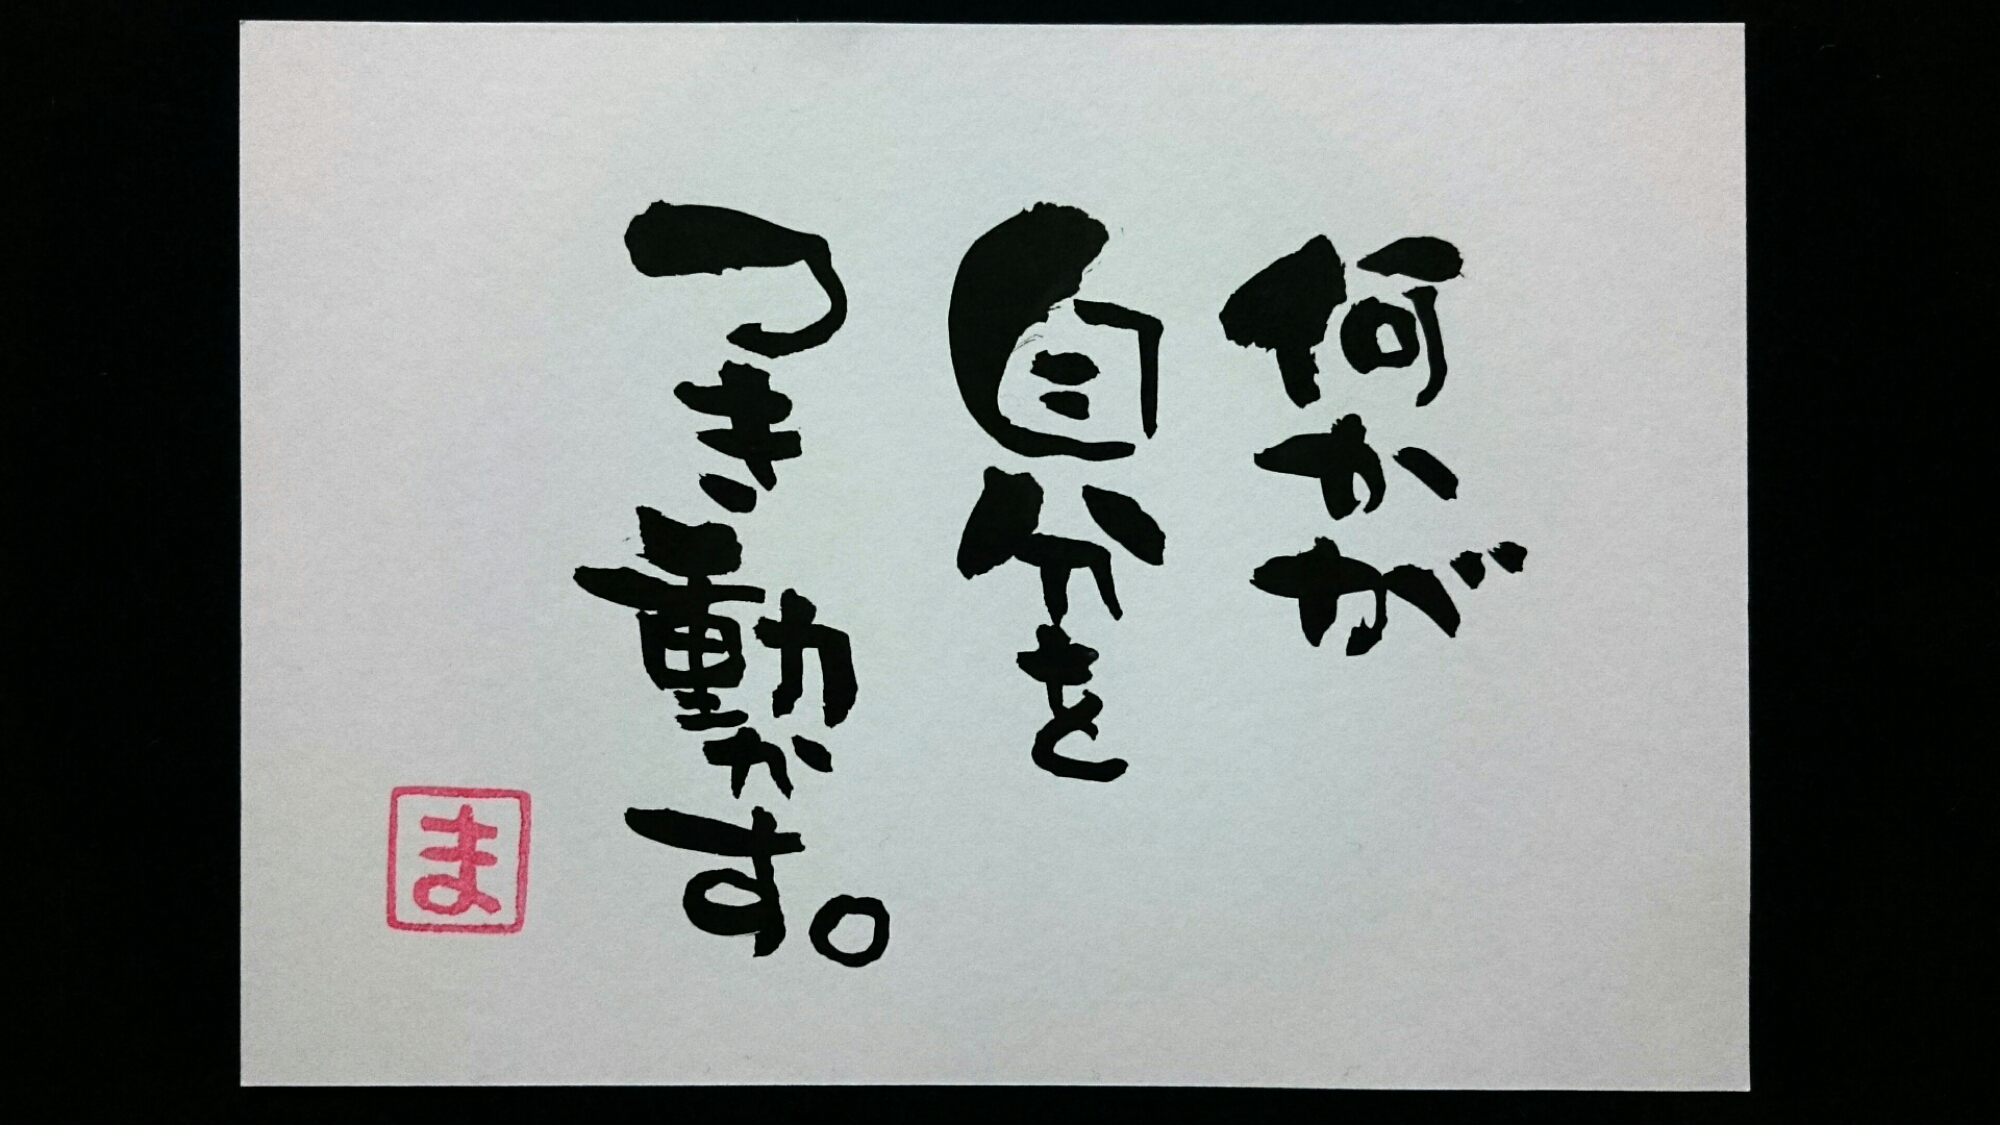 何かが
自分を
つき動かす。
ま